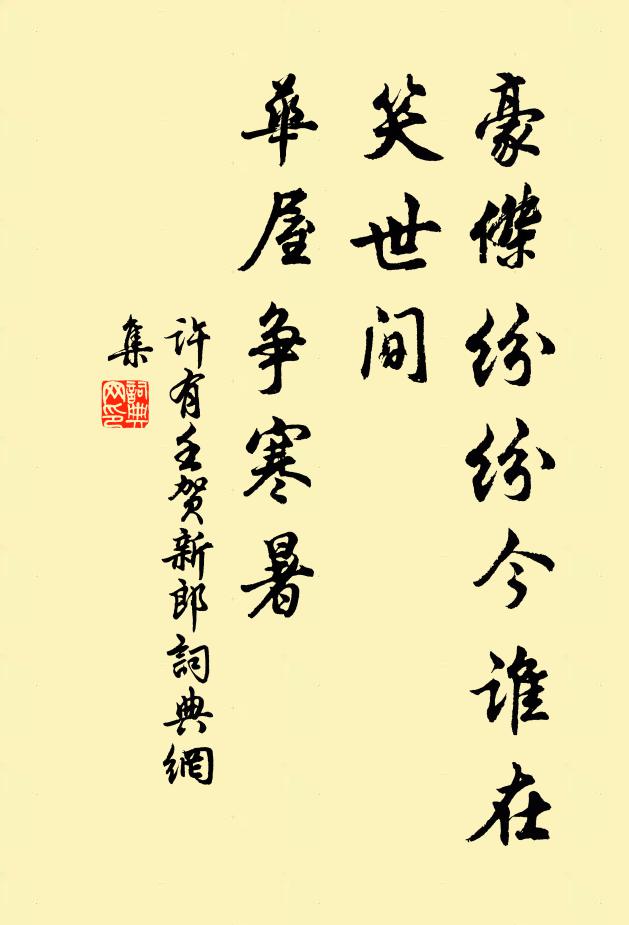 豪傑紛紛今誰在
笑世間
華屋争寒暑
許有壬賀新郎詞典網
集
詞典
网印